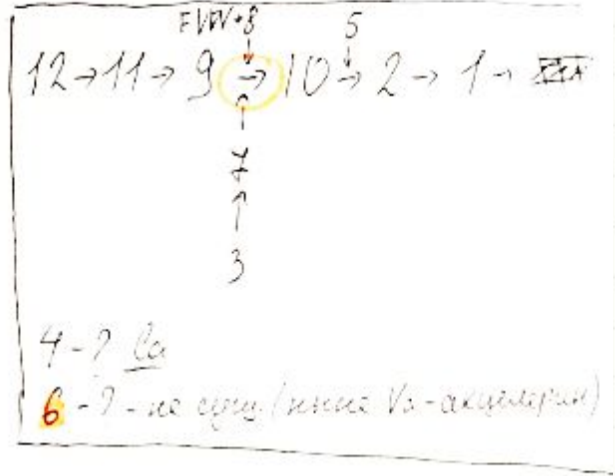 FVW+8 5
12→11→ 9 → 10 → 2 → 1 →
7
3
4 - ? Ca
6 - ? - не сущ (ныне Va-акцелерин)